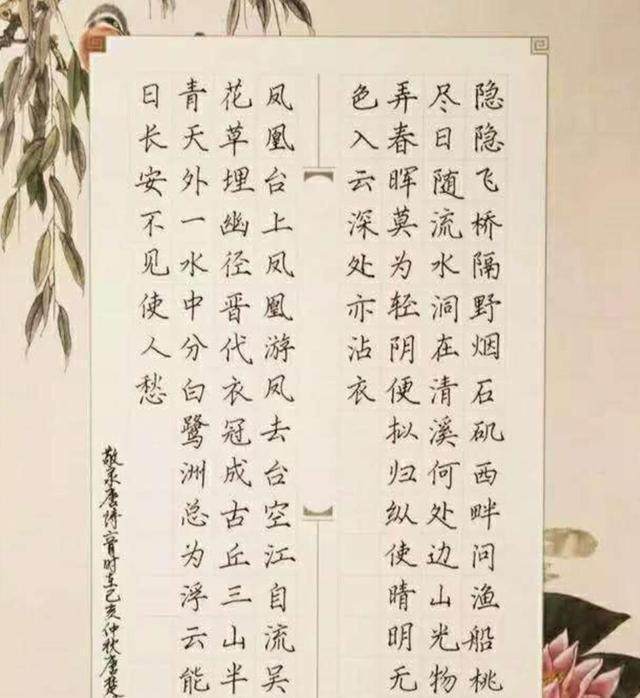 隐隐飞桥隔野烟石矶西畔问渔船桃
尽日随流水洞在清溪何处边山光物
弄春晖莫为轻阴便拟归纵使晴明无
色入云深处亦沾衣
凤凰台上凤凰游凤去台空江自流吴
花草埋幽径晋代衣冠成古丘三山半
青天外一水中分白鹭洲总为浮云能
日长安不见使人愁
敬录唐诗二首时在己亥仲秋唐